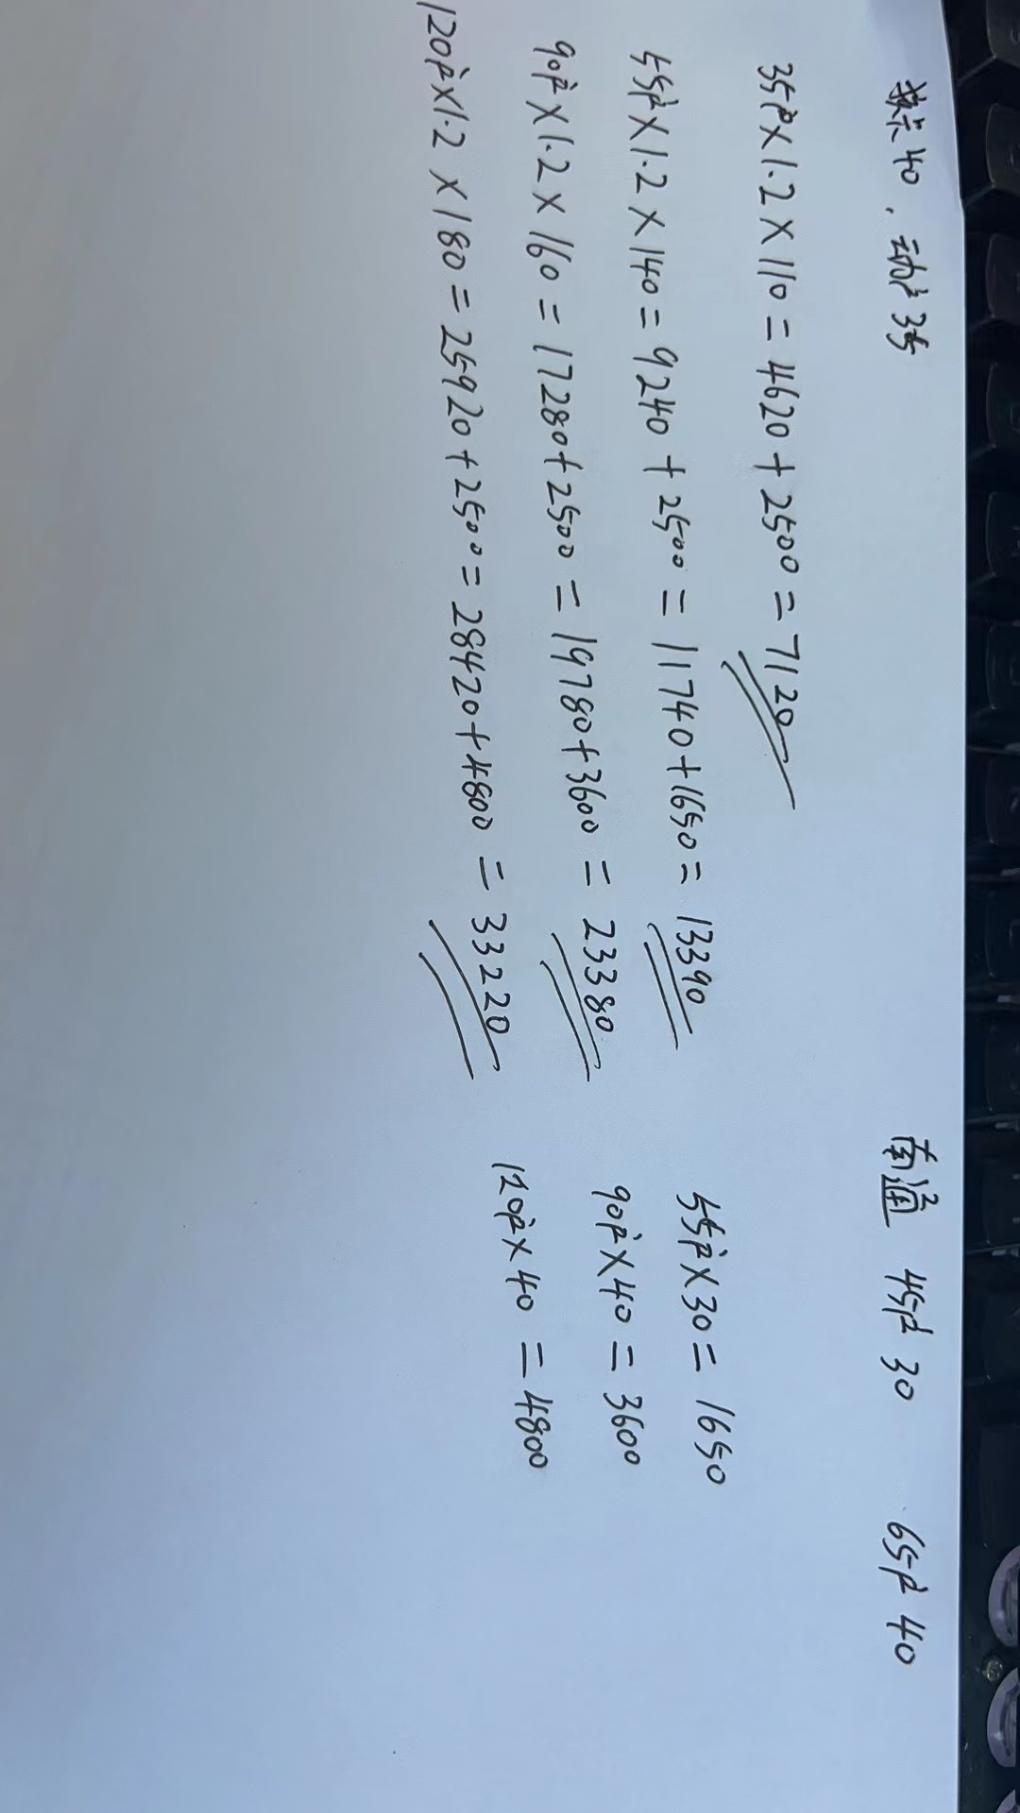 40 . 动户35 南通 45户 30 65户 40
35户×1.2×110=4620+2500=7120
55户×1.2×140=9240+2500=11740+1650=13390 55户×30=1650
90户×1.2×160=17280+2500=19780+3600=23380 90户×40=3600
120户×1.2×180=25920+2500=28420+4800=33220 120户×40=4800